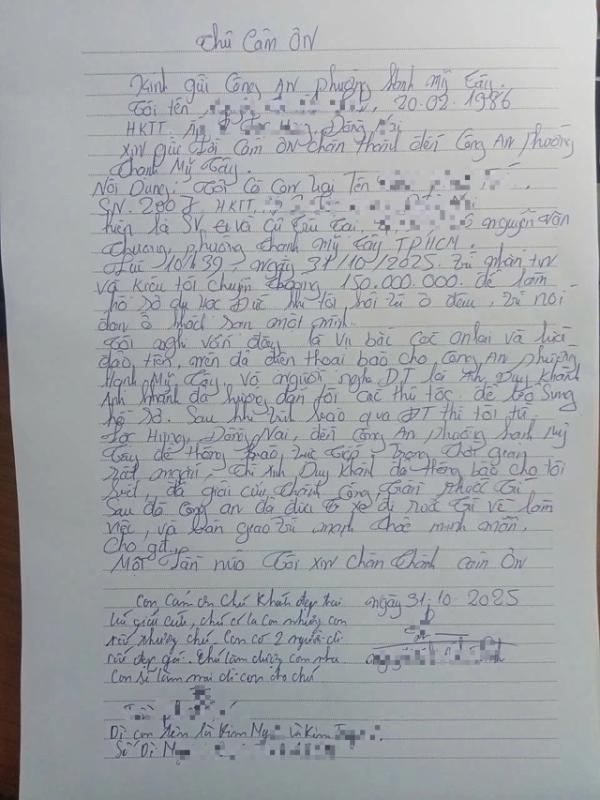 Thư Cảm Ơn
Kính gửi Công An phường Thạnh Mỹ Tây.
Tôi tên, 20.02.1986
HKTT. Ấp Hưng, Đồng Nai
xin gửi lời Cảm Ơn chân thành đến Công An phường
Thạnh Mỹ Tây.
Nội Dung: Tôi Có Con trai Tên
SN. 2007 HKTT,
hiện là SV, ở và Cư Trú Tại, nguyễn Văn
Thương, phường Thạnh Mỹ Tây TPHCM.
Lúc 10h39, ngày 31/10/2025. Tú nhắn tin
và kiêu tôi chuyển khoảng 150.000.000. để làm
hồ sơ du học Đức khi tôi hỏi tú ở đâu, tú nói
đan ở khách sạn một mình.
Tôi nghi vấn đây là vụ bắc cóc onlai và lừa
đảo tiền, nên đã điện thoai báo cho, Công An phường
Thạnh Mỹ Tây, và người nghe ĐT là Duy Khánh
Anh khánh đã hướng dẫn tôi các thủ tóc, để bổ sung
hồ sơ. Sau khi qua ĐT thì tôi từ
Hưng, Đồng Nai, đến Công An phường Thạnh Mỹ
Tây để thông báo, trực tiếp, Trong thời gian
ngắn, thì Duy Khánh đã thông báo cho tôi
biết, đã giải cứu thành công
Sau đó Công an đã đưa tôi xe đi rước Tú về làm
việc, và bàn giao tú mạnh khỏe minh mẫn.
Cho gđ,
Một lần nữa Tôi xin chân thành cảm Ơn
Con Cảm ơn Chú Khánh đẹp trai ngày 31.10.2025
giải cứu, chú có la con nhưng con
rất thương chú. Con có 2 người dì
rất đẹp gái. Chú làm dượng con nha
Con sẽ làm mai dì con cho chú
Dì con tên là Kim và Kim
Số Dì